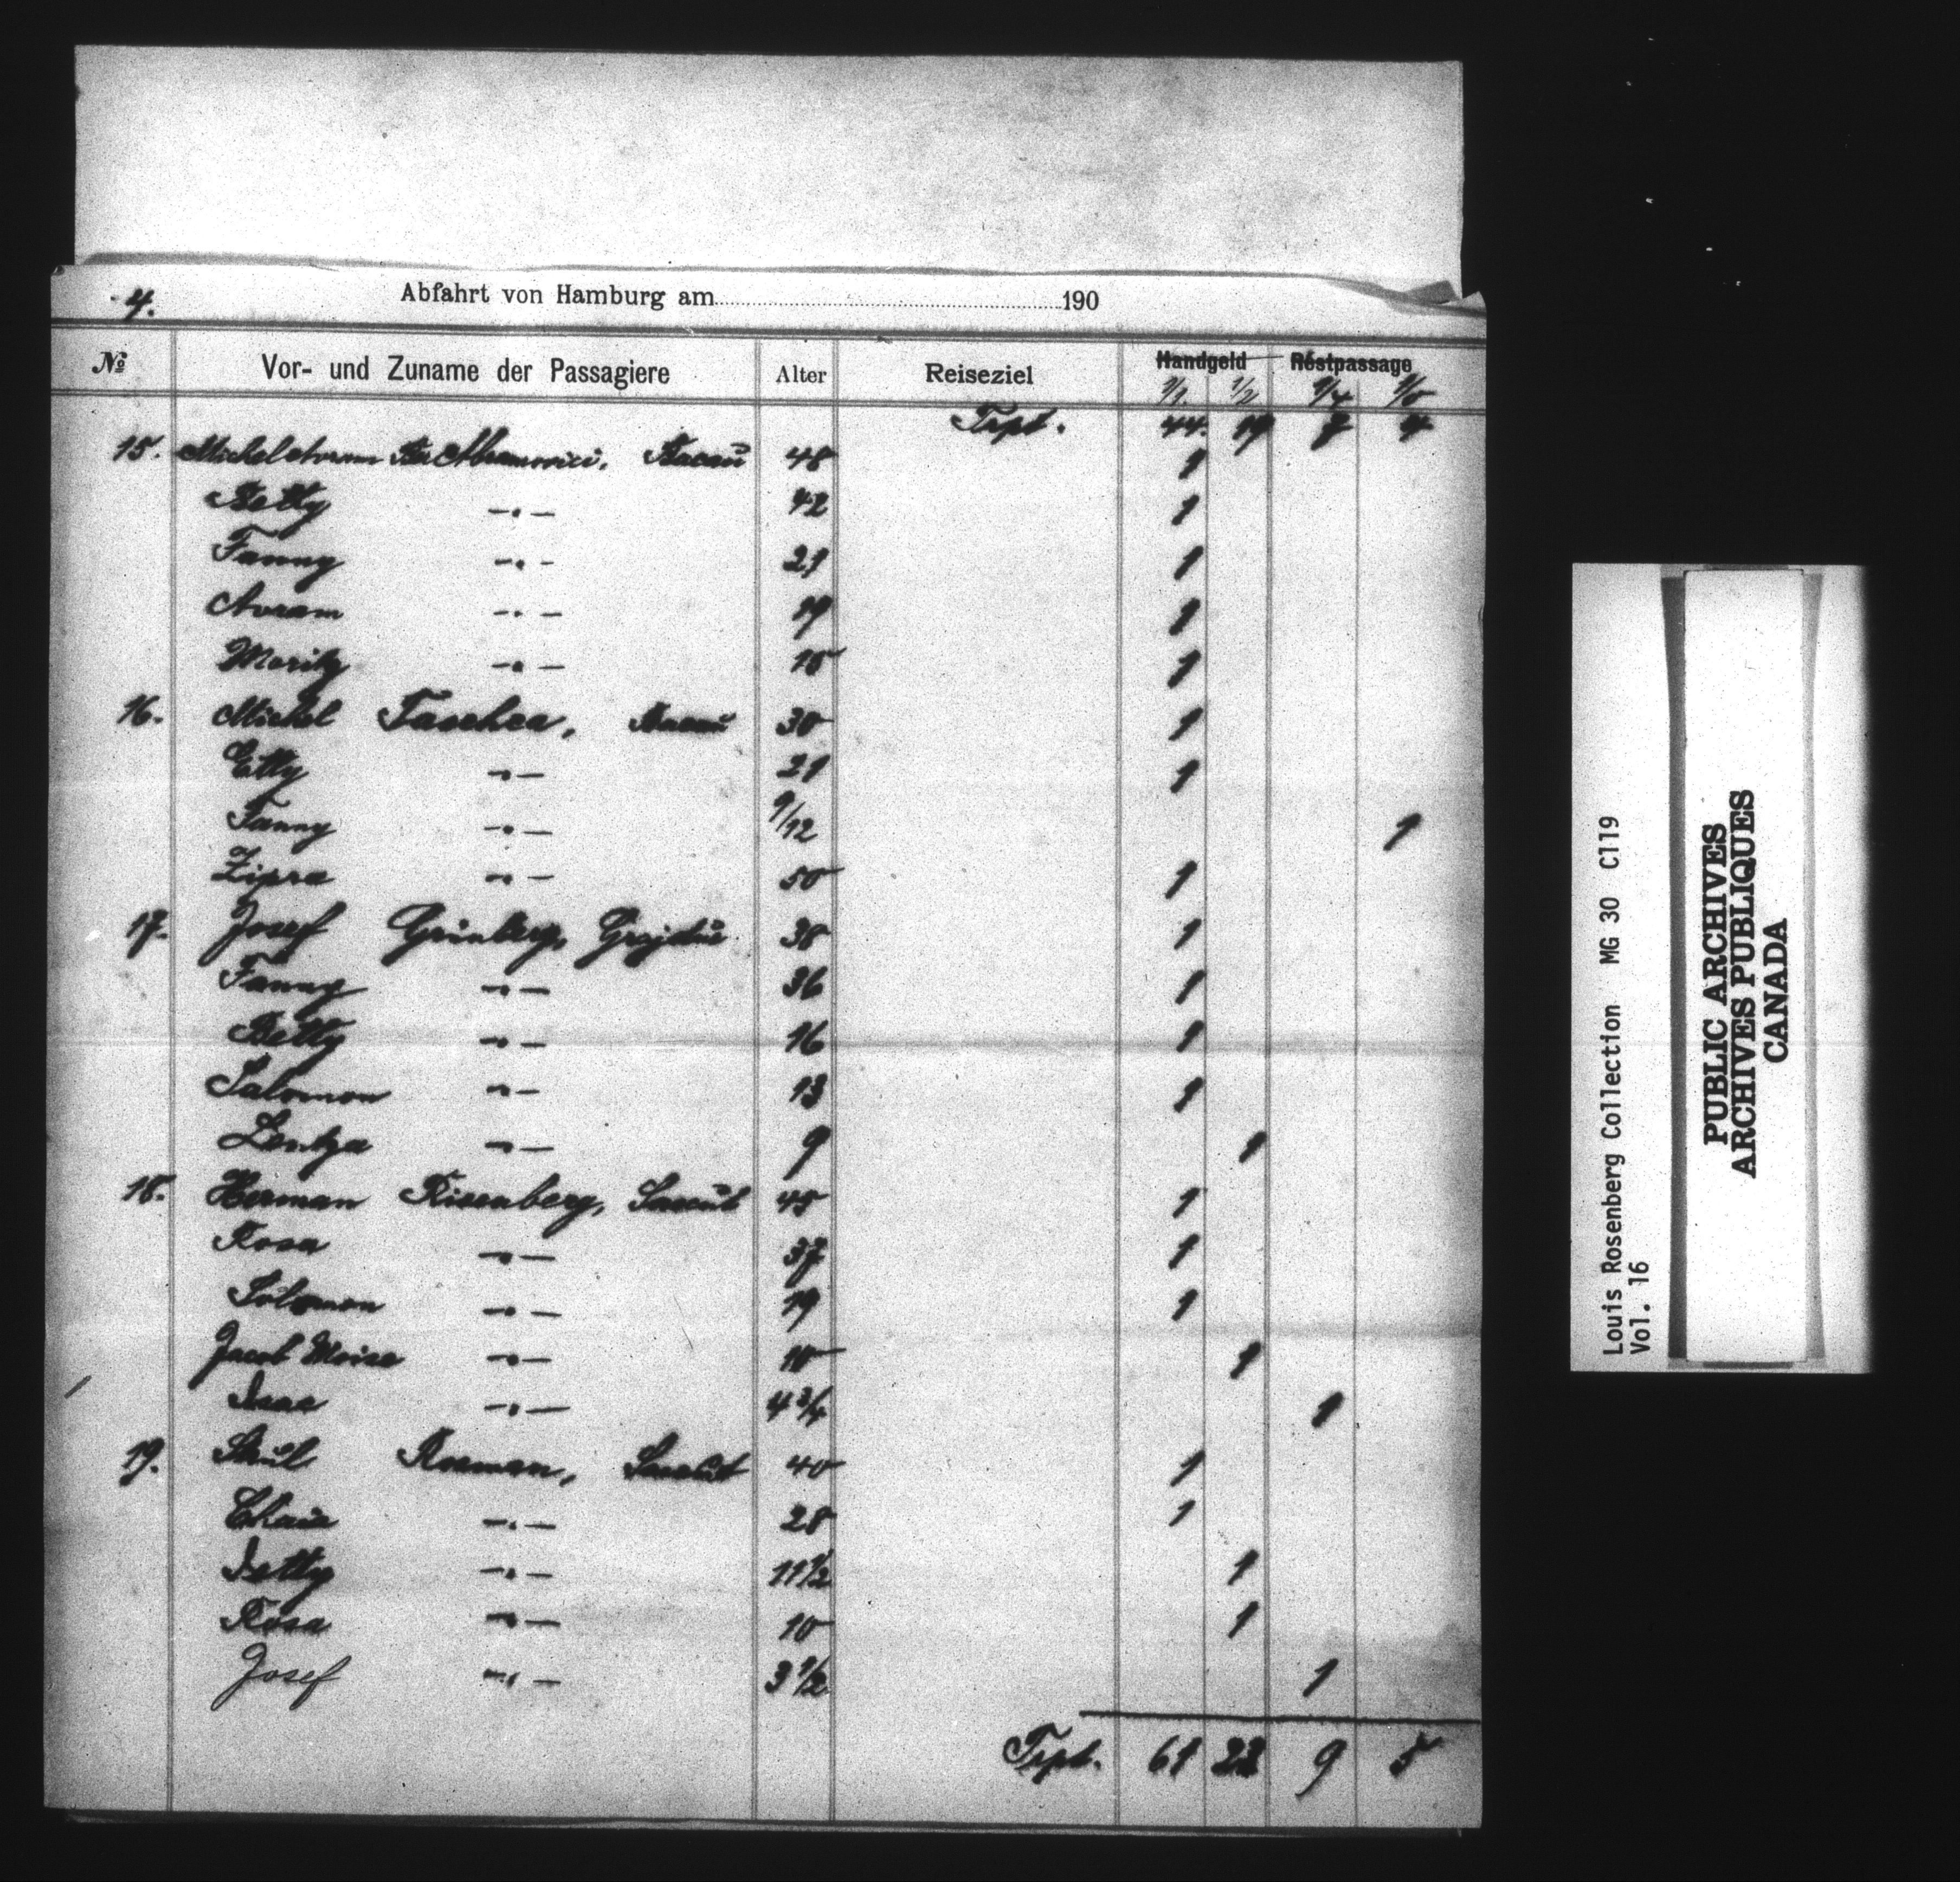 4. Abfahrt von Hamburg am 190
№ Vor- und Zuname der Passagiere Alter Reiseziel Handgeld Restpassage
1/1 1/2 1/4 1/0
Trpt. 44. 19 7 4
15. Michel Avram Abramovici, Bacau 48 1
Betty -"- 42 1
Fanny -"- 21 1
Avram -"- 19 1
Moritz -"- 18 1
16. Michel Taschea, Bacau 30 1
Etty -"- 21 1
Fanny -"- 9/12 1
Zipra -"- 50 1
17. Josef Grinberg, 38 1
Fanny -"- 36 1
Betty -"- 16 1
Salomon -"- 13 1
Lentza -"- 9 1
18. Herman Risenberg, Sascut 45 1
Rosa -"- 37 1
Solomon -"- 19 1
Jacob Moise -"- 10 1
Isac -"- 4 3/4 1
19. Srul Rosman, Sascut 40 1
Chaie -"- 28 1
Betty -"- 11 1/2 1
Rosa -"- 10 1
Josef -"- 3 1/2 1
Trpt. 61 23 9 5
Louis Rosenberg Collection MG 30 C119
Vol. 16
PUBLIC ARCHIVES
ARCHIVES PUBLIQUES
CANADA